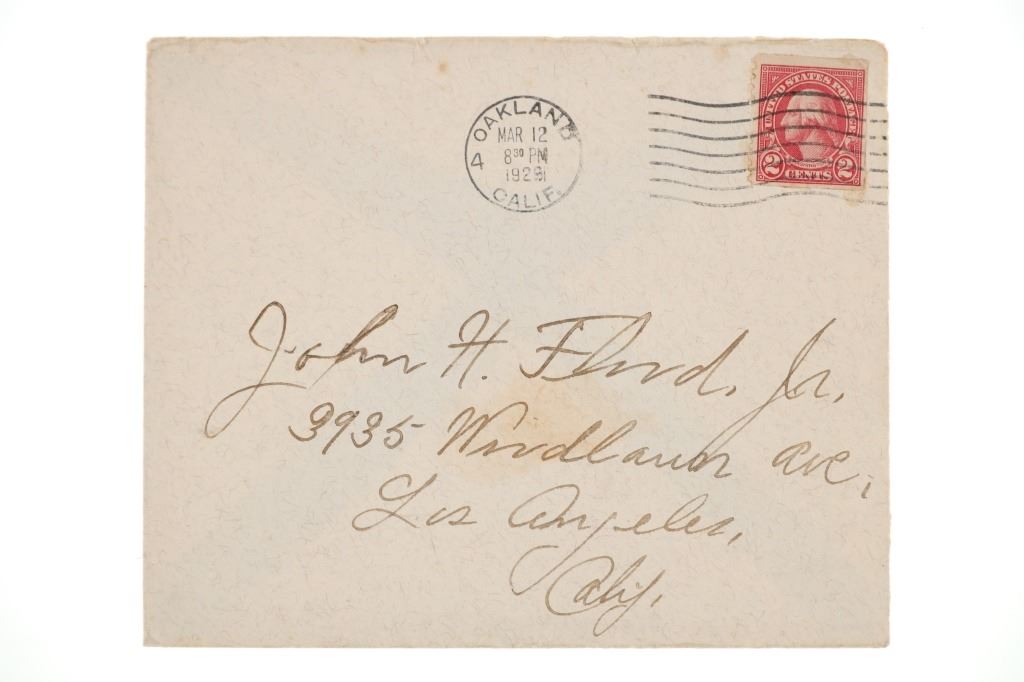 OAKLAND
MAR 12
4 8 30 PM
1929
CALIF.
UNITED STATES POSTAGE
2 CENTS 2
John H. Flood, Jr.
3935 Woodlawn Ave,
Los Angeles,
Calif.